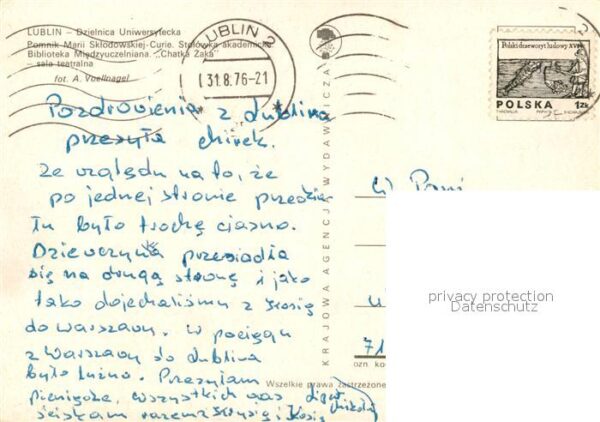 LUBLIN – Dzielnica Uniwersytecka
Pomnik Marii Skłodowskiej-Curie. Stołówka akademicka
Biblioteka Międzyuczelniana. „Chatka Żaka"
– sala teatralna
fot. A. Voellnagel
LUBLIN 2
31.8.76-21
Polski drzeworyt ludowy XVI w.
POLSKA 1zł
KRAJOWA AGENCJA WYDAWNICZA
Pozdrowienia z Lublina
przesyła Mirek.
Ze względu na to, że
po jednej stronie przedzia
Tu było trochę ciasno.
Dziewczyna przesiadła
się na drugą stronę i jako
tako dojechaliśmy z Kosią
do Warszawy. W pociągu
z Warszawy do Lublina
było luźno. Przesyłam
pieniądze, wszystkich was
ściskam razem z Krysią i Kosią
W Pani
71
ozn ko
Wszelkie prawa zastrzeżone
privacy protection
Datenschutz